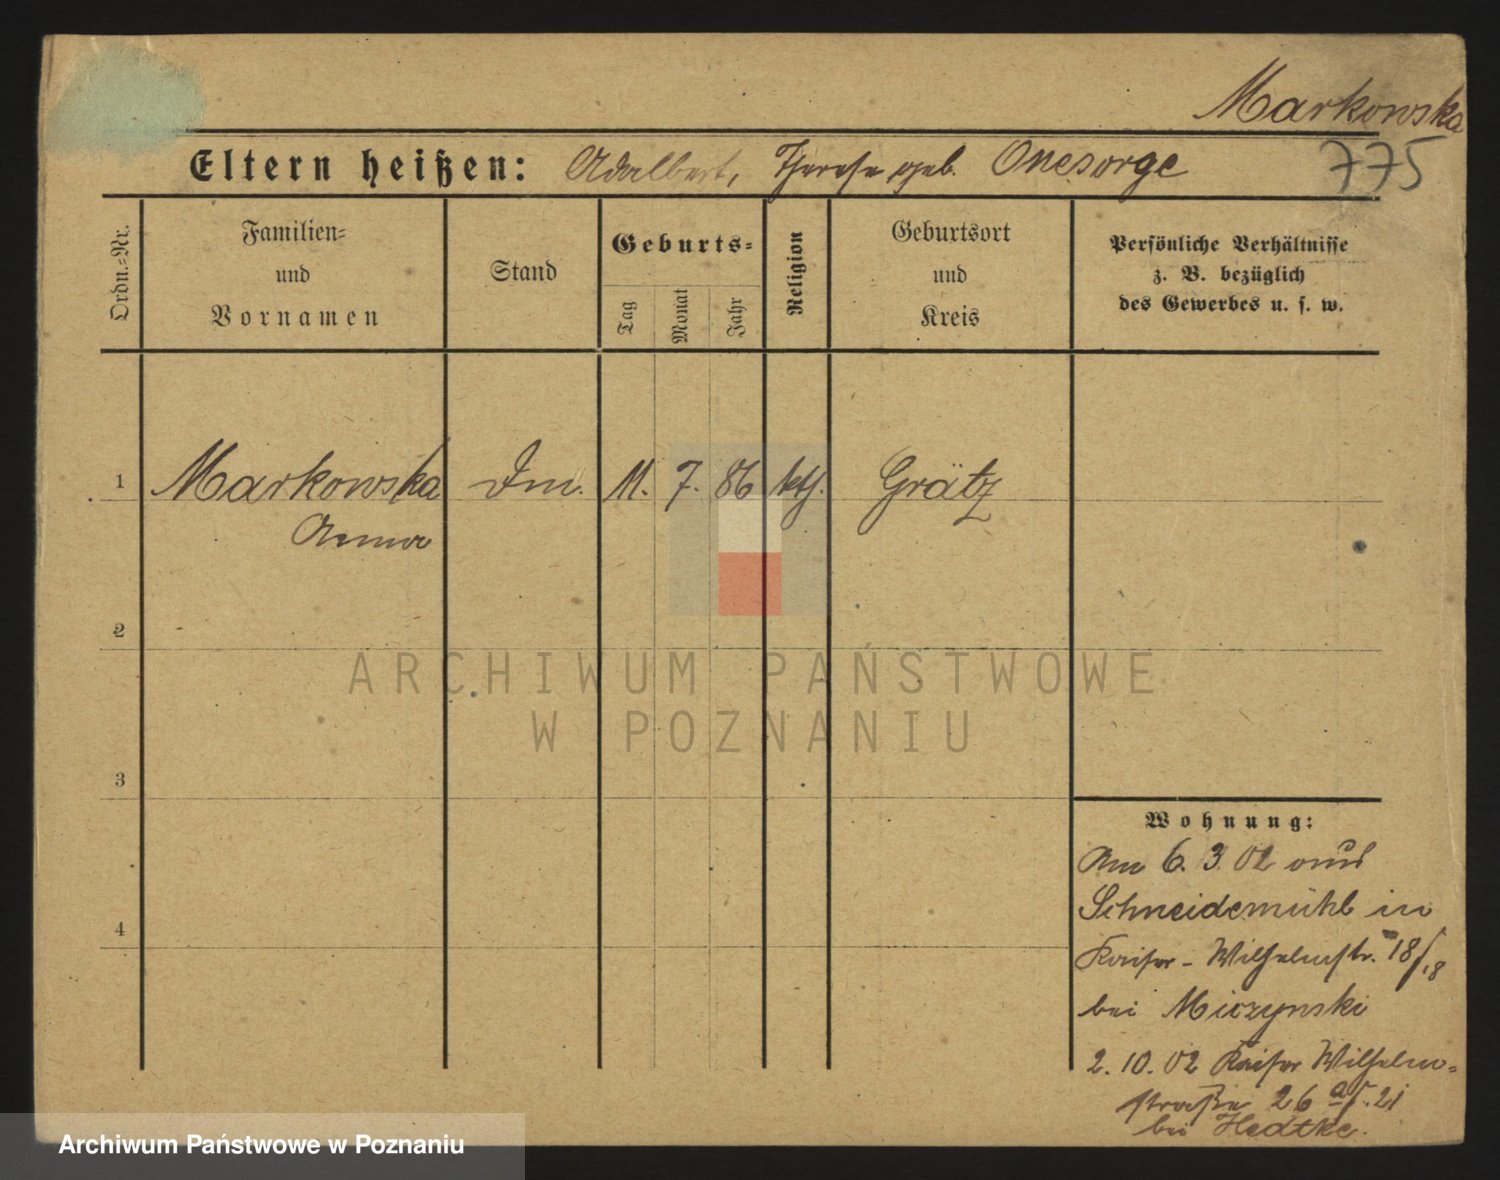 Markowska
775
Eltern heißen: Adalbert, Therese geb. Onesorge
Ordn.-Nr.
Familien-
und
Vornamen
Stand
Geburts-
Tag
Monat
Jahr
Religion
Geburtsort
und
Kreis
Persönliche Verhältnisse
z. B. bezüglich
des Gewerbes u. s. w.
1 Markowska 11. 7. 86 kth. Grätz
Anna
2
3
4
ARCHIWUM PAŃSTWOWE
W POZNANIU
Wohnung:
Am 6. 3. 02 aus
Schneidemühl in
Kaiser-Wilhelmstr. 18/18
bei Miczynski
2. 10. 02 Kaiser Wilhelm-
straße 26 a 21
bei Hedtke.
Archiwum Państwowe w Poznaniu